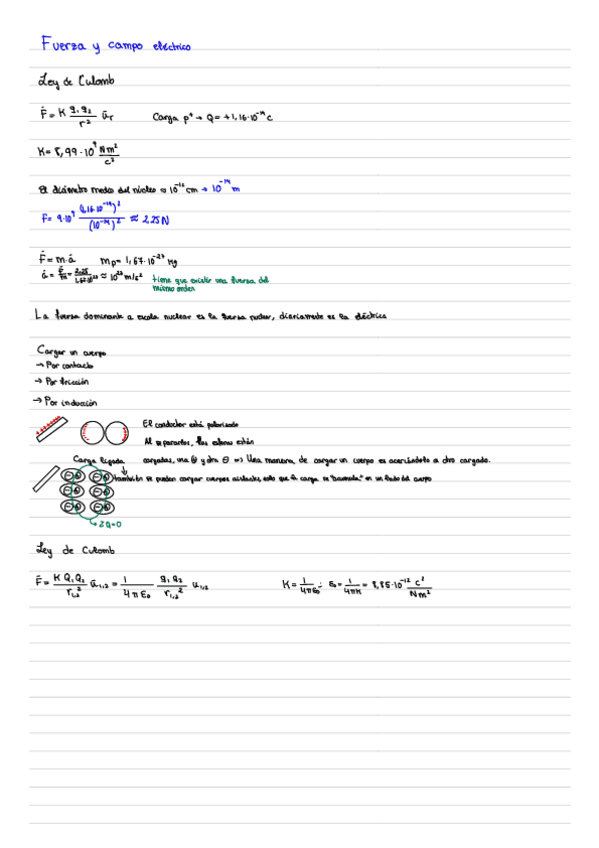 Fuerza y campo eléctrico
Ley de Culomb
F = K q₁ q₂ / r² ūr Carga p⁺ → Q = +1,16·10⁻¹⁹ C
K = 8,99·10⁹ Nm²/C²
El diámetro medio del núcleo ≈ 10⁻¹² cm → 10⁻¹⁴ m
F = 9·10⁹ (1,16·10⁻¹⁹)² / (10⁻¹⁴)² ≈ 2,25 N
F = m·ā mp = 1,67·10⁻²⁷ kg
ā = F/m = 2,25 / ≈ 10²⁷ m/s² tiene que existir una fuerza del
mismo orden
La fuerza dominante a escala nuclear es la fuerza nuclear, diariamente es la eléctrica
Cargar un cuerpo
→ Por contacto
→ Por fricción
→ Por inducción
El conductor está polarizado
Al separarlos, las esferas están
Carga ligada cargadas, una ⊕ y otra ⊖ => Una manera de cargar un cuerpo es acercándolo a otro cargado.
también se pueden cargar cuerpos aislados, solo que la carga se "acumula" en un lado del cuerpo
→ ΣQ=0
Ley de Culomb
F = K Q₁ Q₂ / r₁,₂² ū₁,₂ = 1 / 4πε₀ q₁ q₂ / r₁,₂² u₁,₂ K = 1 / 4πε₀ ; ε₀ = 1 / 4πK = 8,85·10⁻¹² C² / Nm²